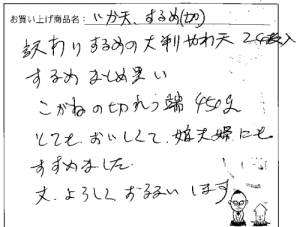 お買い上げ商品名: いか天、するめ(切)
訳わりするめの大判やわ天 24枚入
するめまとめ買い
こがねの切れっ端 450g
とても、おいしくて、娘夫婦にも
すすめました
又、よろしくおねがいします